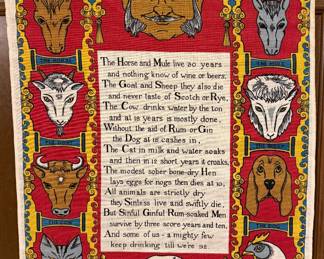 The Horse and Mule live 30 years
and nothing know of wine or beers.
The Goat and Sheep they also die
and never taste of Scotch or Rye.
The Cow drinks water by the ton
and at 18 years is mostly done,
Without the aid of Rum or Gin
the Dog at 15 cashes in,
The Cat in milk and water soaks
and then in 12 short years it croaks,
The modest sober bone-dry Hen
lays eggs for nogs then dies at 10,
All animals are strictly dry
they Sinless live and swiftly die,
But Sinful Ginful Rum-soaked Men
survive by three score years and ten,
And some of us - a mighty few
keep drinking till we're 92
THE HORSE
THE MULE
THE GOAT
THE SHEEP
THE COW
THE DOG